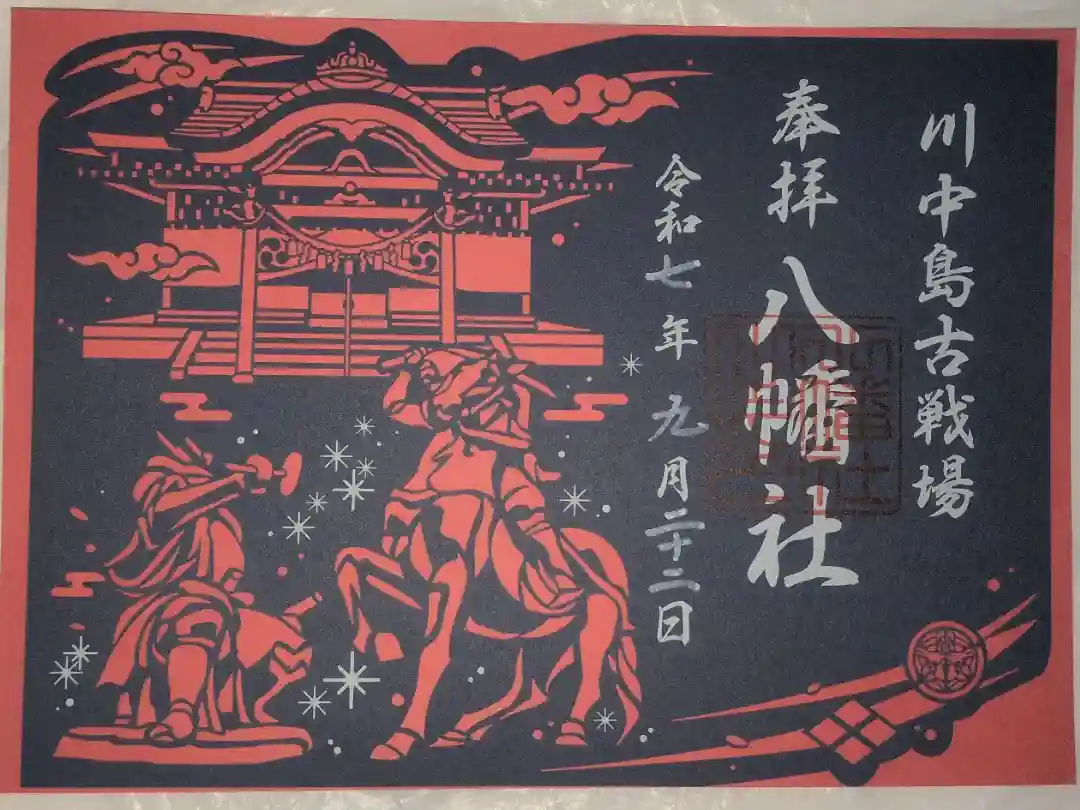 川中島古戦場
奉拝 八幡社
令和七年九月二十二日